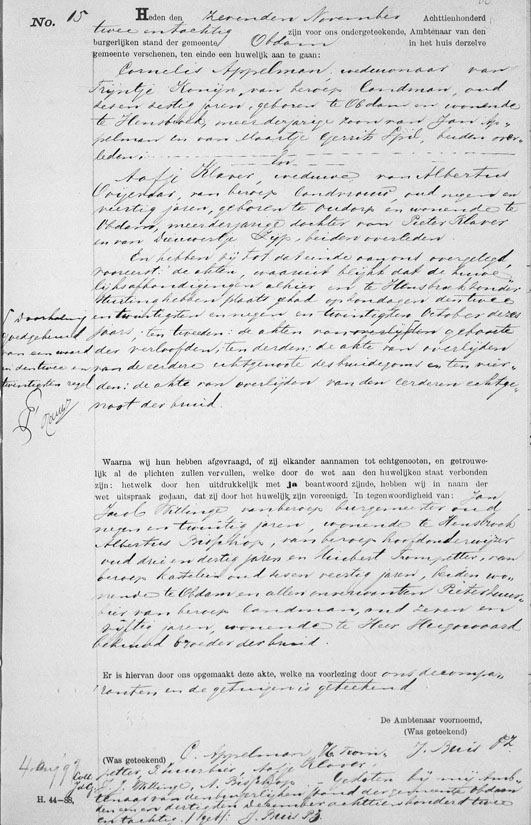 No. 15 Heden den zevenden November Achttienhonderd
twee en tachtig zijn voor ons ondergeteekende, Ambtenaar van den
burgerlijken stand der gemeente Obdam in het huis derzelve
gemeente verschenen, ten einde een huwelijk aan te gaan:
Cornelis Appelman, weduwnaar van
Trijntje Konijn, van beroep Landman, oud
zes en zestig jaren, geboren te Obdam en wonende
te Hensbroek, meerderjarige zoon van Jan Ap-
pelman en van Maartje Gerrits Spil, beiden over-
leden; en
Aafje Klaver, weduwe van Albertus
van beroep Landvrouw, oud negen en
veertig jaren, geboren te Oudorp en wonende te
Obdam, meerderjarige dochter van Pieter Klaver
en van Dieuwertje Zijp, beiden overleden.
En hebben zij tot dat einde aan ons overgelegd,
voor eerst: de akten, waaruit blijkt dat de huwe-
lijksafkondigingen alhier en te Hensbroek zonder
stuiting hebben plaats gehad op zondagen den twee
en twintigsten en negen en twintigsten October dezes
jaars; ten tweeden: de akten van geboorte
der verloofden; ten derden: de akte van overlijden
van de eerdere echtgenoote des bruidegoms en ten vier-
den: de akte van overlijden van den eerderen echtge-
noot der bruid.
doorhaling
goedgekeurd
van een woord
in den twee en
twintigsten regel
Waarna wij hun hebben afgevraagd, of zij elkander aannamen tot echtgenooten, en getrouwe-
lijk al de plichten zullen vervullen, welke door de wet aan den huwelijken staat verbonden
zijn: hetwelk door hen uitdrukkelijk met ja beantwoord zijnde, hebben wij in naam der
wet uitspraak gedaan, dat zij door het huwelijk zijn vereenigd. In tegenwoordigheid van: Jan
Jacob Willinge van beroep burgemeester oud
negen en twintig jaren, wonende te Hensbroek
Albertus Bisschop, van beroep hoofdonderwijzer
oud drie en dertig jaren en Huibert Trompetter, van
beroep kastelein oud zes en veertig jaren, beiden wo-
nende te Obdam en allen en Pieter Kuur-
bier van beroep Landman, oud zeven en
vijftig jaren, wonende te Heer Hugowaard
behuwd broeder der bruid.
Er is hiervan door ons opgemaakt deze akte, welke na voorlezing door ons de compa-
ranten en de getuigen is geteekend
De Ambtenaar voornoemd,
(Was geteekend)
J. Buis Pz
(Was geteekend) C. Appelman, H Trom-
petter, P. Kuurbier, Aafje Klaver,
J. J. Willinge, A. Bisschop. Gesloten bij mij Amb-
tenaar van den burgerlijken stand der gemeente Obdam
den een en dertigsten December achttienhonderd twee
en tachtig. (get) J. Buis Pz
H. 44-88,